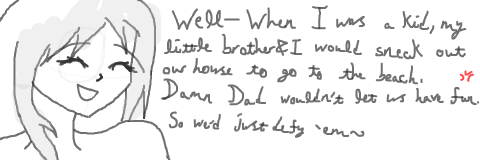 Well- When I was a kid, my
little brother & I would sneak out
our house to go to the beach.
Damn Dad wouldn't let us have fun.
So we'd just defy 'em~